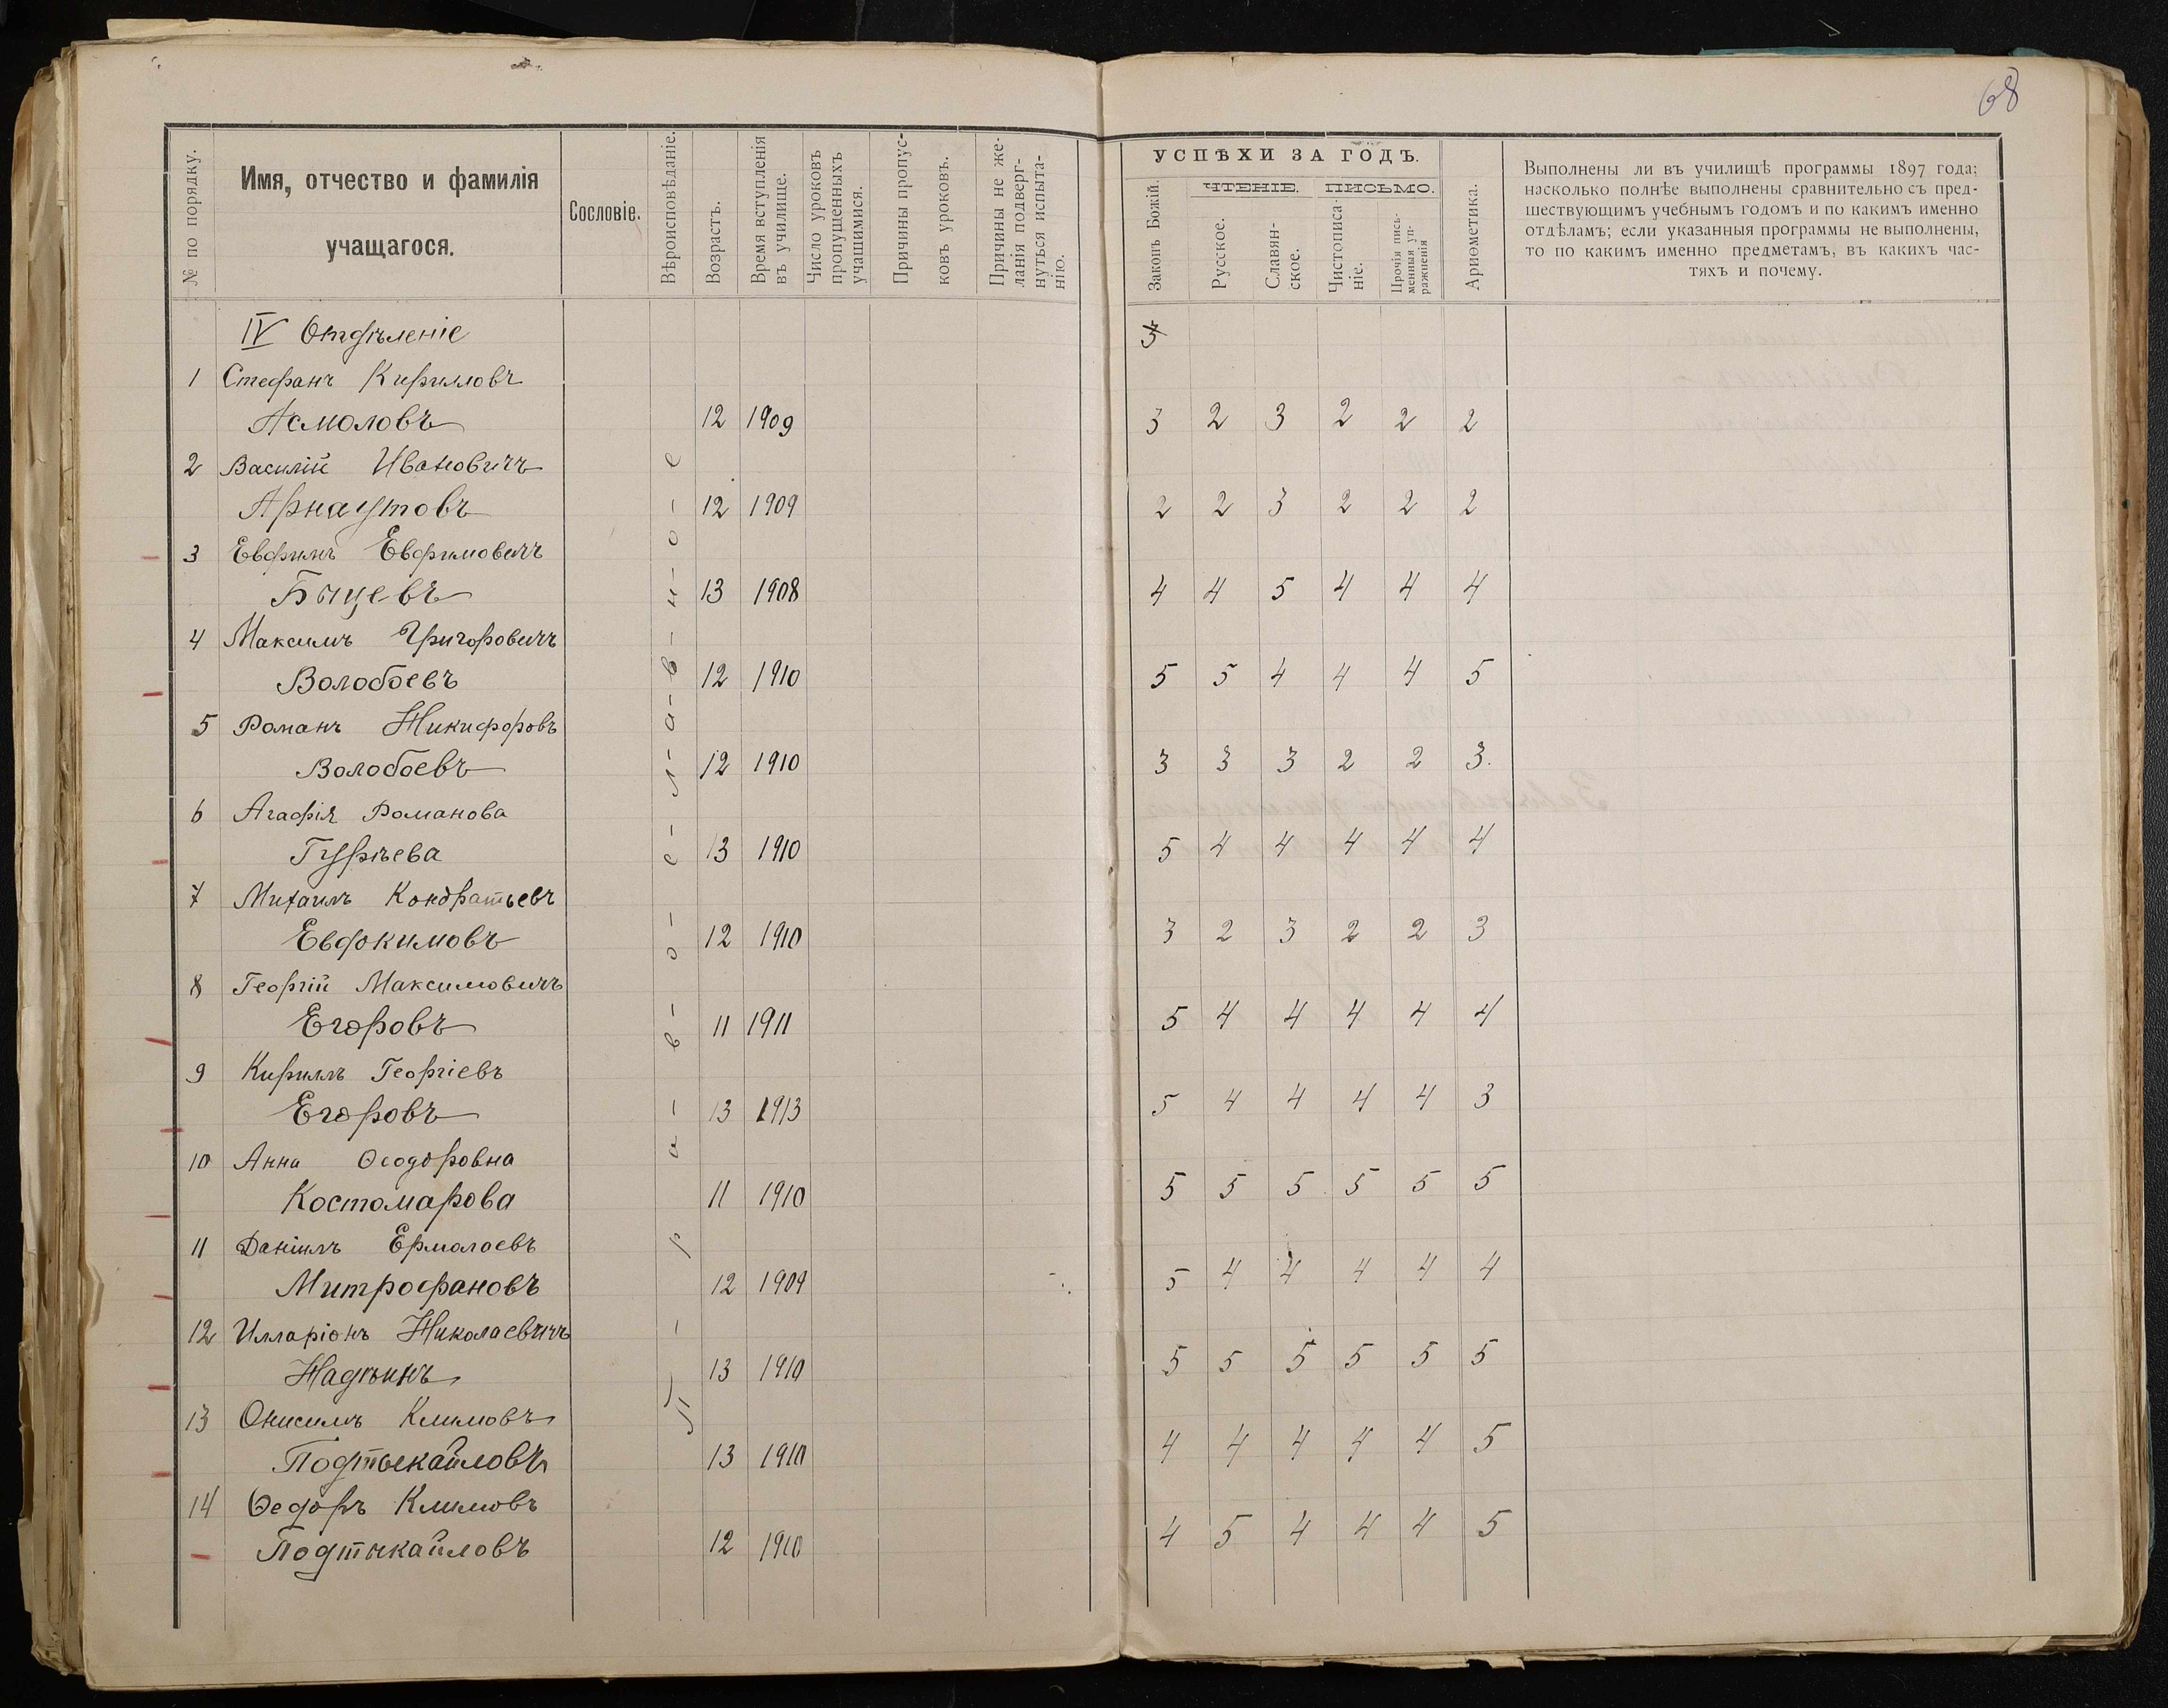 68
№ по порядку.
Имя, отчество и фамилія
учащагося.
Сословіе.
Вѣроисповѣданіе.
Возрастъ.
Время вступленія
въ училище.
Число уроковъ
пропущенныхъ
учащимися.
Причины пропус-
ковъ уроковъ.
Причины не же-
ланія подверг-
нуться испыта-
нію.
УСПѢХИ ЗА ГОДЪ.
Законъ Божій.
ЧТЕНІЕ.
Русское.
Славян-
ское.
ПИСЬМО.
Чистописа-
ніе.
Прочія пись-
менныя уп-
ражненія
Ариѳметика.
Выполнены ли въ училищѣ программы 1897 года;
насколько полнѣе выполнены сравнительно съ пред-
шествующимъ учебнымъ годомъ и по какимъ именно
отдѣламъ; если указанныя программы не выполнены,
то по какимъ именно предметамъ, въ какихъ час-
тяхъ и почему.
IV Отдѣленіе
П-р-а-в-о-с-л-а-в-н-о-е
1 Стефанъ Кирилловъ
Асмоловъ 12 1909 3 2 3 2 2 2
2 Василій Ивановичъ
Арнаутовъ 12 1909 2 2 3 2 2 2
3 Евфимъ Евфимовичъ
Быцевъ 13 1908 4 4 5 4 4 4
4 Максимъ Григоровичъ
Волобоевъ 12 1910 5 5 4 4 4 5
5 Романъ Никифоровъ
Волобоевъ 12 1910 3 3 3 2 2 3.
6 Агафія Романова
Гурѣева 13 1910 5 4 4 4 4 4
7 Михаилъ Кондратьевъ
Евдокимовъ 12 1910 3 2 3 2 2 3
8 Георгій Максимовичъ
Егоровъ 11 1911 5 4 4 4 4 4
9 Кириллъ Георгіевъ
Егоровъ 13 1913 5 4 4 4 4 3
10 Анна Ѳеодоровна
Костомарова 11 1910 5 5 5 5 5 5
11 Даніилъ Ермолаевъ
Митрофановъ 12 1909 5 4 4 4 4 4
12 Илларіонъ Николаевичъ
Надѣинъ 13 1910 5 5 5 5 5 5
13 Онисимъ Климовъ
Подтыкайловъ 13 1910 4 4 4 4 4 5
14 Ѳедоръ Климовъ
Подтыкайловъ 12 1910 4 5 4 4 4 5